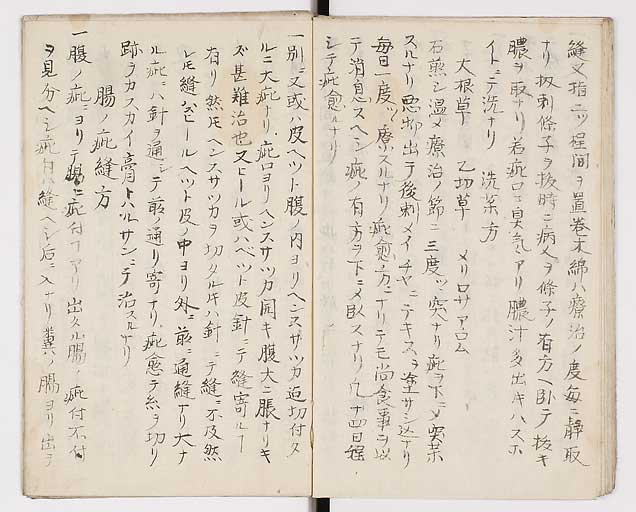 縫又指二ツ程間ヲ置巻木綿ハ療治ノ度毎ニ静取
ナリ扨刺條子ヲ抜時ニ病人ヲ條子ノ有方ヘ卧テ抜キ
膿ヲ取ナリ若疵口ニ臭気アリ膿汁多出キハスホ
イトニテ洗ナリ 洗薬方
大根草 乙切草 メリロサアロム
石煎シ温メ療治ノ節ニ三度ツヽ突ナリ疵ヲ下ニメ突薬
スルナリ悪物出テ後刺メイチヤニテキスヲ塗サシ込ナリ
毎日一度ツヽ療スルナリ疵愈方ニナリテモ尚食事ヲ以
テ消息スヘシ疵ノ有方ヲ下ニメ卧スナリ凡十四日程
シテ疵愈ルナリ
一別ニ又或ハ皮ヘツト腹ノ内ヨリヘンスサツカ迠切付ス
ルニ大疵ナリ疵口ヨリヘンスサツカ開キ腹大ニ脹ナリキ
ズ甚難治也スヒール或ハベツト皮針ニテ縫寄ルヿ
有リ然圧ヘンスサツカヲ切タル片ハ針ニテ縫ニ不及然
レ圧スピールヘツト皮ノ中ヨリ外ニ前ニ通縫ナリ大ナ
ル疵ニハ針ヲ通シテ前ノ通リ寄ナリ疵愈テ糸ヲ切リ
跡ヲカスカイ膏トハルサンニテ治スルナリ
腸ノ疵縫方
一腹ノ疵ヨリテ腸ニ疵付フアリ出タル腸ニ疵付不付
ヲ見分ヘシ疵有ハ縫ヘシ后ニ入ナリ糞ノ腸ヨリ出テ